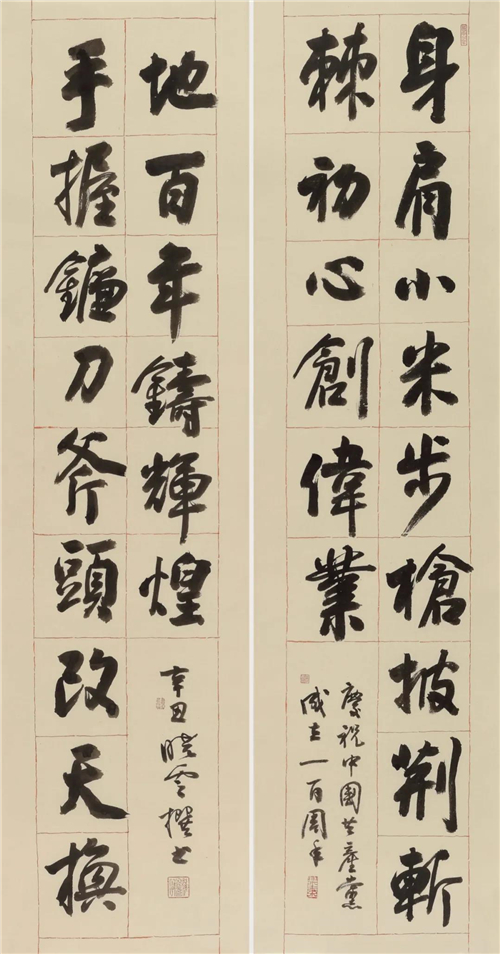 身肩小米步槍披荊斬
棘初心創偉業
慶祝中國共產黨
成立一百周年
手握鐮刀斧頭改天換
地百年鑄輝煌
辛丑曉雲撰書